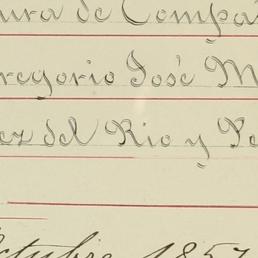 ura de Compañ
regorio José M
ez del Rio y Pe
Octubre 1857